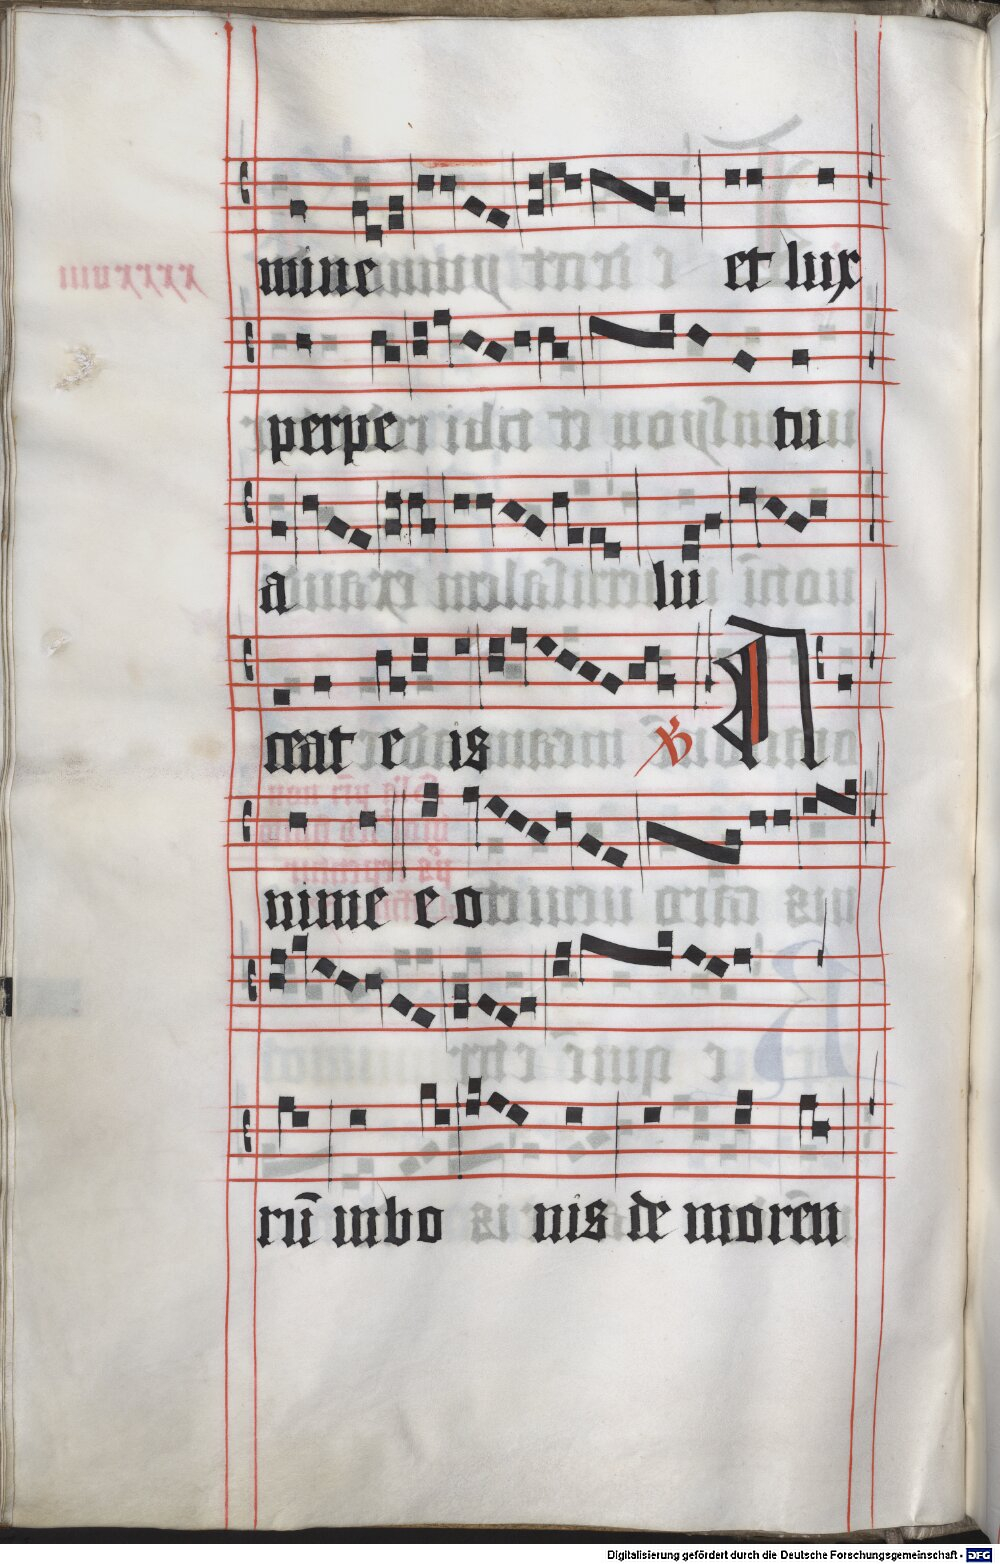 mine et lux
perpe tu
a lu
ceat e is ℣ A
nime e o
rū in bo nis de moren
Digitalisierung gefördert durch die Deutsche Forschungsgemeinschaft - DFG